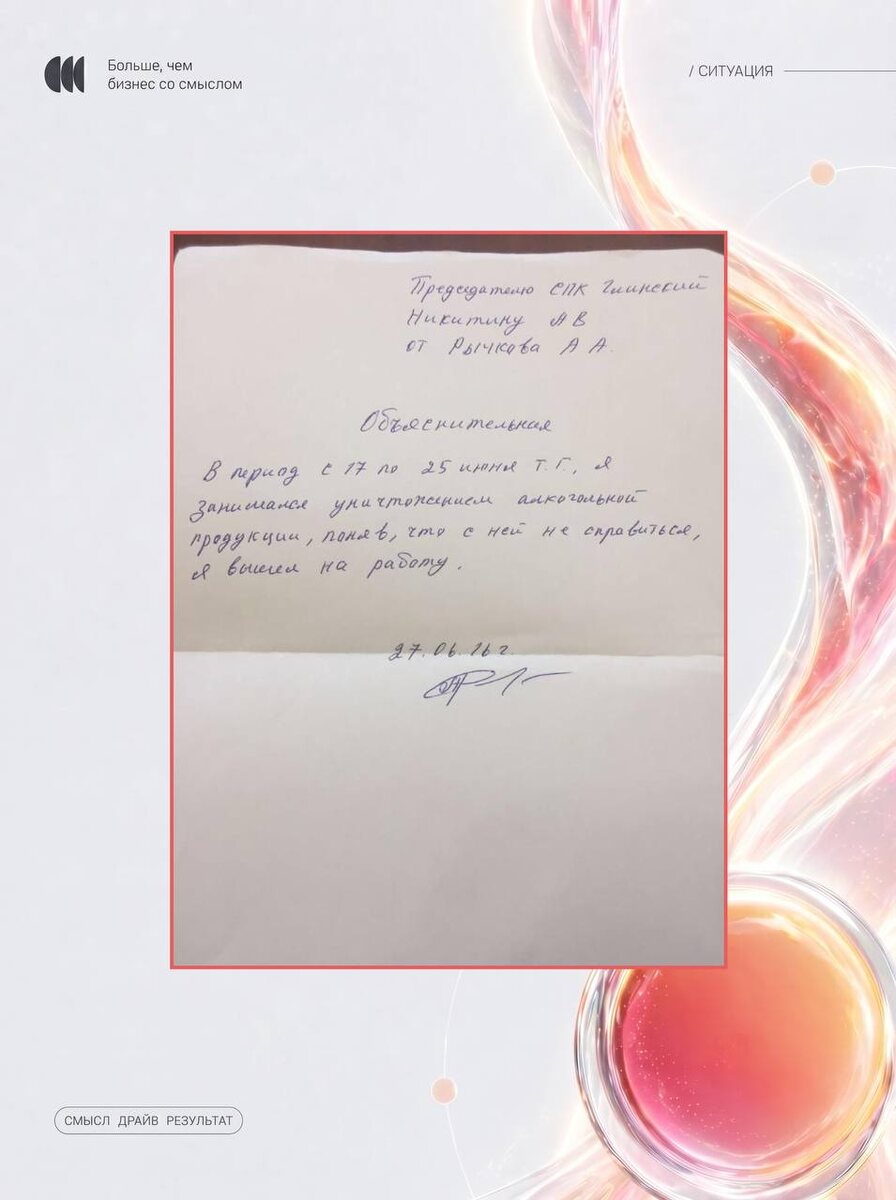 Больше, чем
бизнес со смыслом
/ СИТУАЦИЯ
Председателю СПК Глинский
Никитину А В
от Рычкова А А.
Объяснительная
В период с 17 по 25 июня т.г., я
занимался уничтожением алкогольной
продукции, поняв, что с ней не справиться,
я вышел на работу.
27.06.16 г
СМЫСЛ ДРАЙВ РЕЗУЛЬТАТ